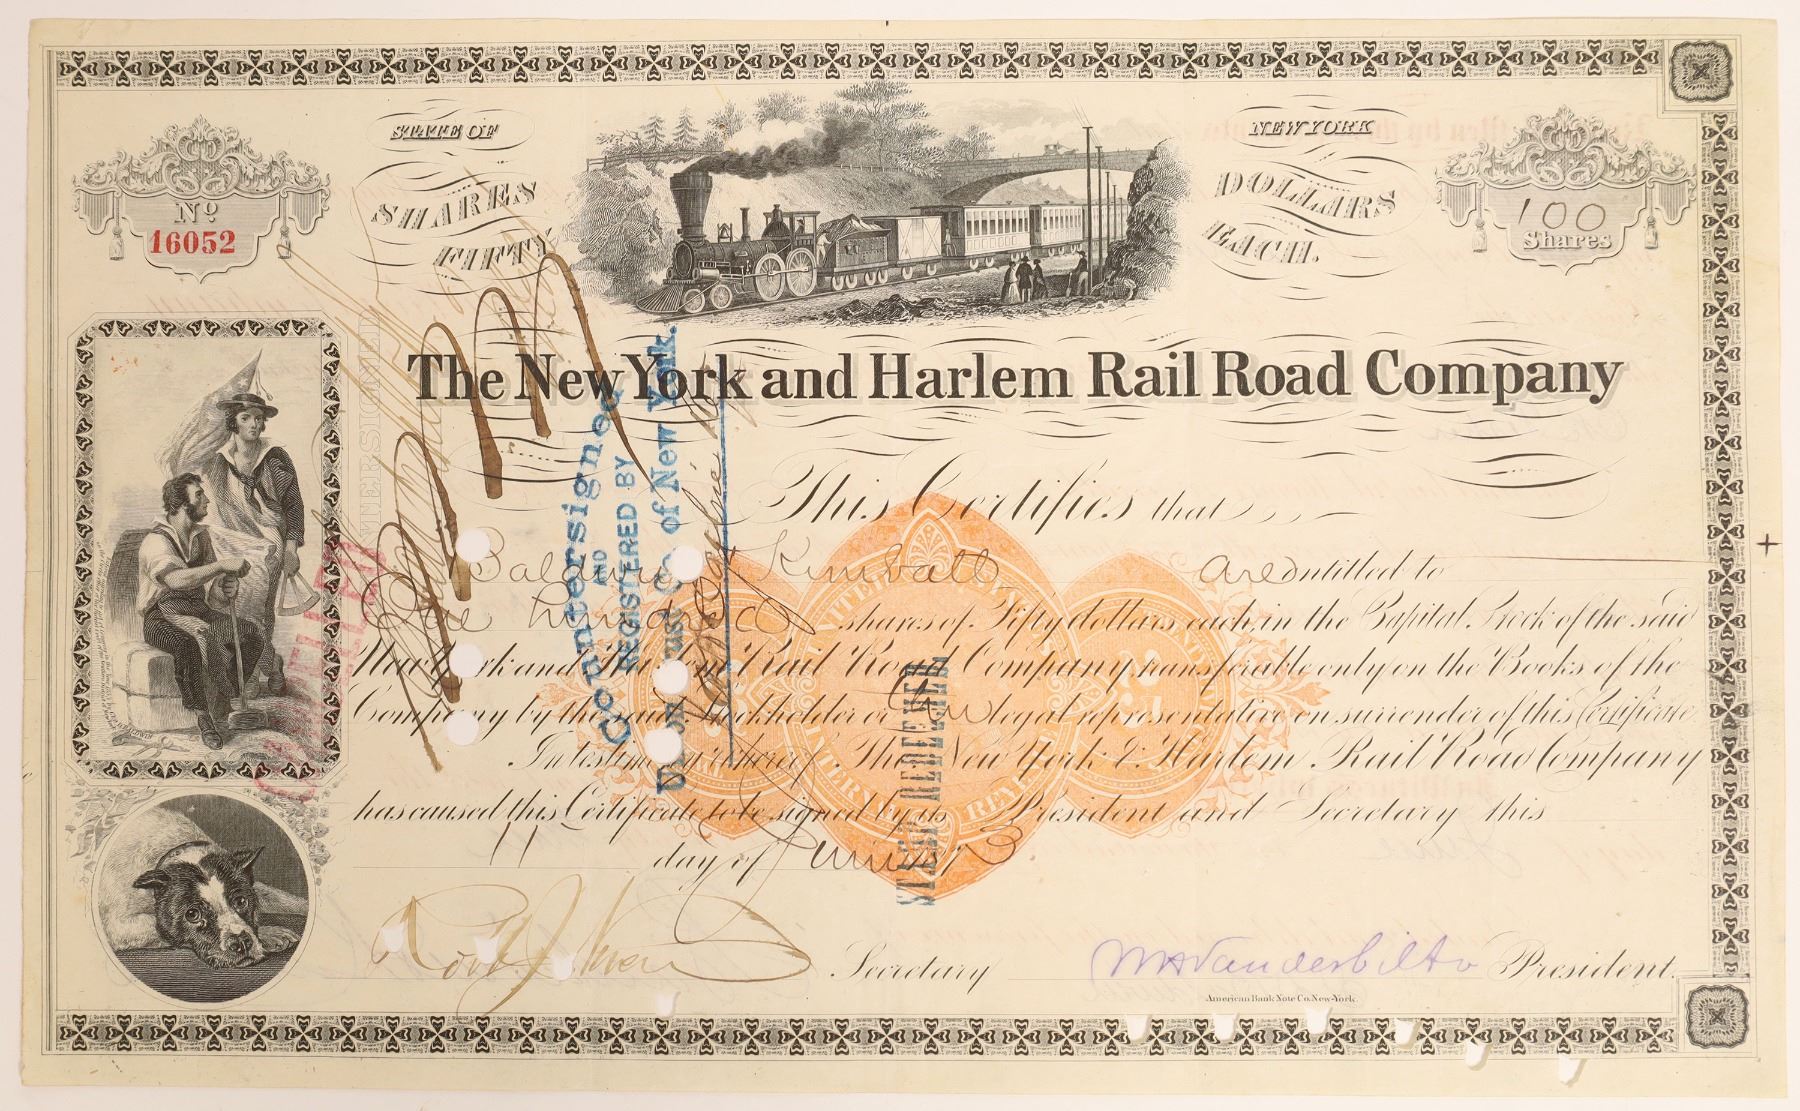 STATE OF
NEW YORK
No
16052
SHARES
FIFTY
DOLLARS
EACH.
100
Shares
The New York and Harlem Rail Road Company
This Certifies that
Baldwin & Kimball are entitled to
One hundred shares of Fifty dollars each, in the Capital Stock of the said
New York and Harlem Rail Road Company transferable only on the Books of the
Company by the said Stockholder or legal representative on surrender of this Certificate.
In testimony whereof The New York & Harlem Rail Road Company
has caused this Certificate to be signed by its President and Secretary this
11 day of June 1873
Secretary
W H Vanderbilt President.
American Bank Note Co. New-York.
Countersigned
AND
REGISTERED BY
Union Trust Co of New York.
CANCELLED
STEEN REDEEMED
UNITED STATES
INTERNAL REVENUE
25